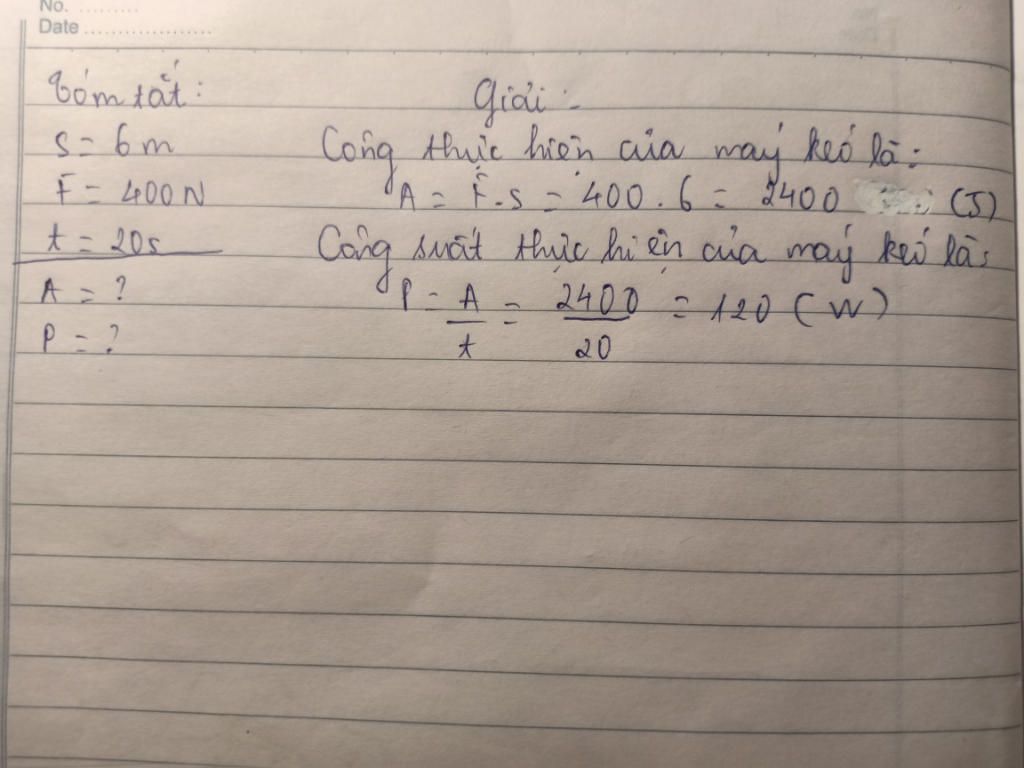 No. .........
Date ....................
Tóm tắt:
Giải:
s = 6m
Công thực hiện của máy kéo là:
F = 400N
A = F.s = 400.6 = 2400 (J)
t = 20s
Công suất thực hiện của máy kéo là:
A = ?
P = A/t = 2400/20 = 120 (W)
P = ?